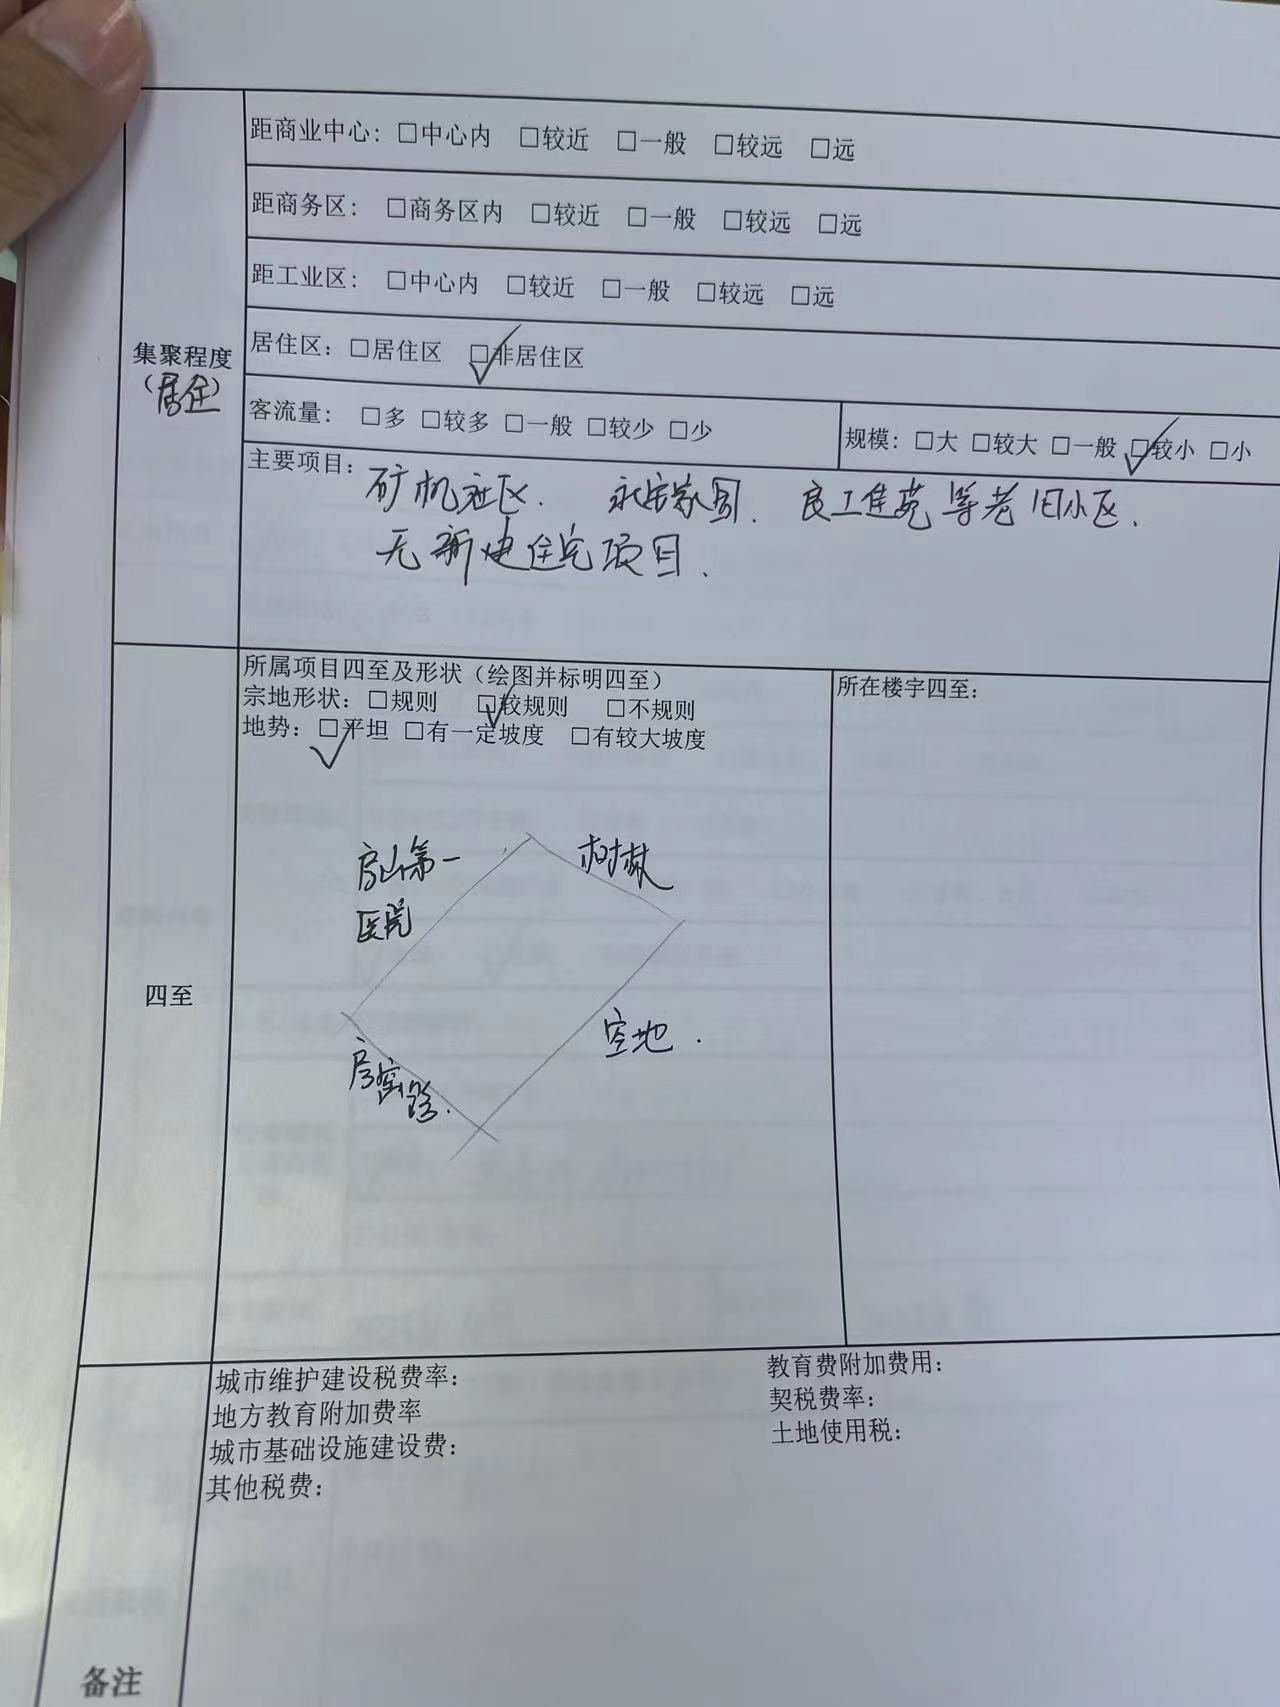 距商业中心：□中心内 □较近 □一般 □较远 □远
距商务区： □商务区内 □较近 □一般 □较远 □远
距工业区： □中心内 □较近 □一般 □较远 □远
集聚程度
（居住）
居住区：□居住区 ☑非居住区
客流量： □多 □较多 □一般 □较少 □少
规模：□大 □较大 □一般 ☑较小 □小
主要项目：矿机社区． 永安家园． 良工佳苑等老旧小区．
无新建住宅项目．
四至
所属项目四至及形状（绘图并标明四至）
宗地形状：□规则 ☑较规则 □不规则
地势：☑平坦 □有一定坡度 □有较大坡度
房山第一
医院
树林
空地．
房窑路．
所在楼宇四至：
城市维护建设税费率：
地方教育附加费率
城市基础设施建设费：
其他税费：
教育费附加费用：
契税费率：
土地使用税：
备注